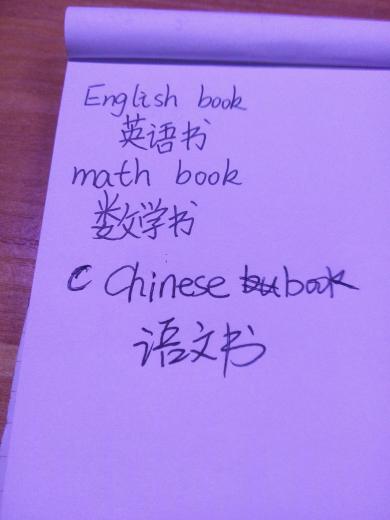 English book
英语书
math book
数学书
C Chinese book
语文书